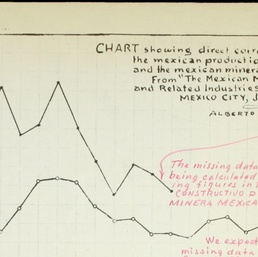 CHART showing direct corre
the mexican production
and the mexican minera
From "The Mexican M
and Related Industries
MEXICO CITY, J
ALBERTO
The missing data
being calculated
ing figures in
"CONSTRUCTIVO D
MINERA MEXICA
We expect
missing data